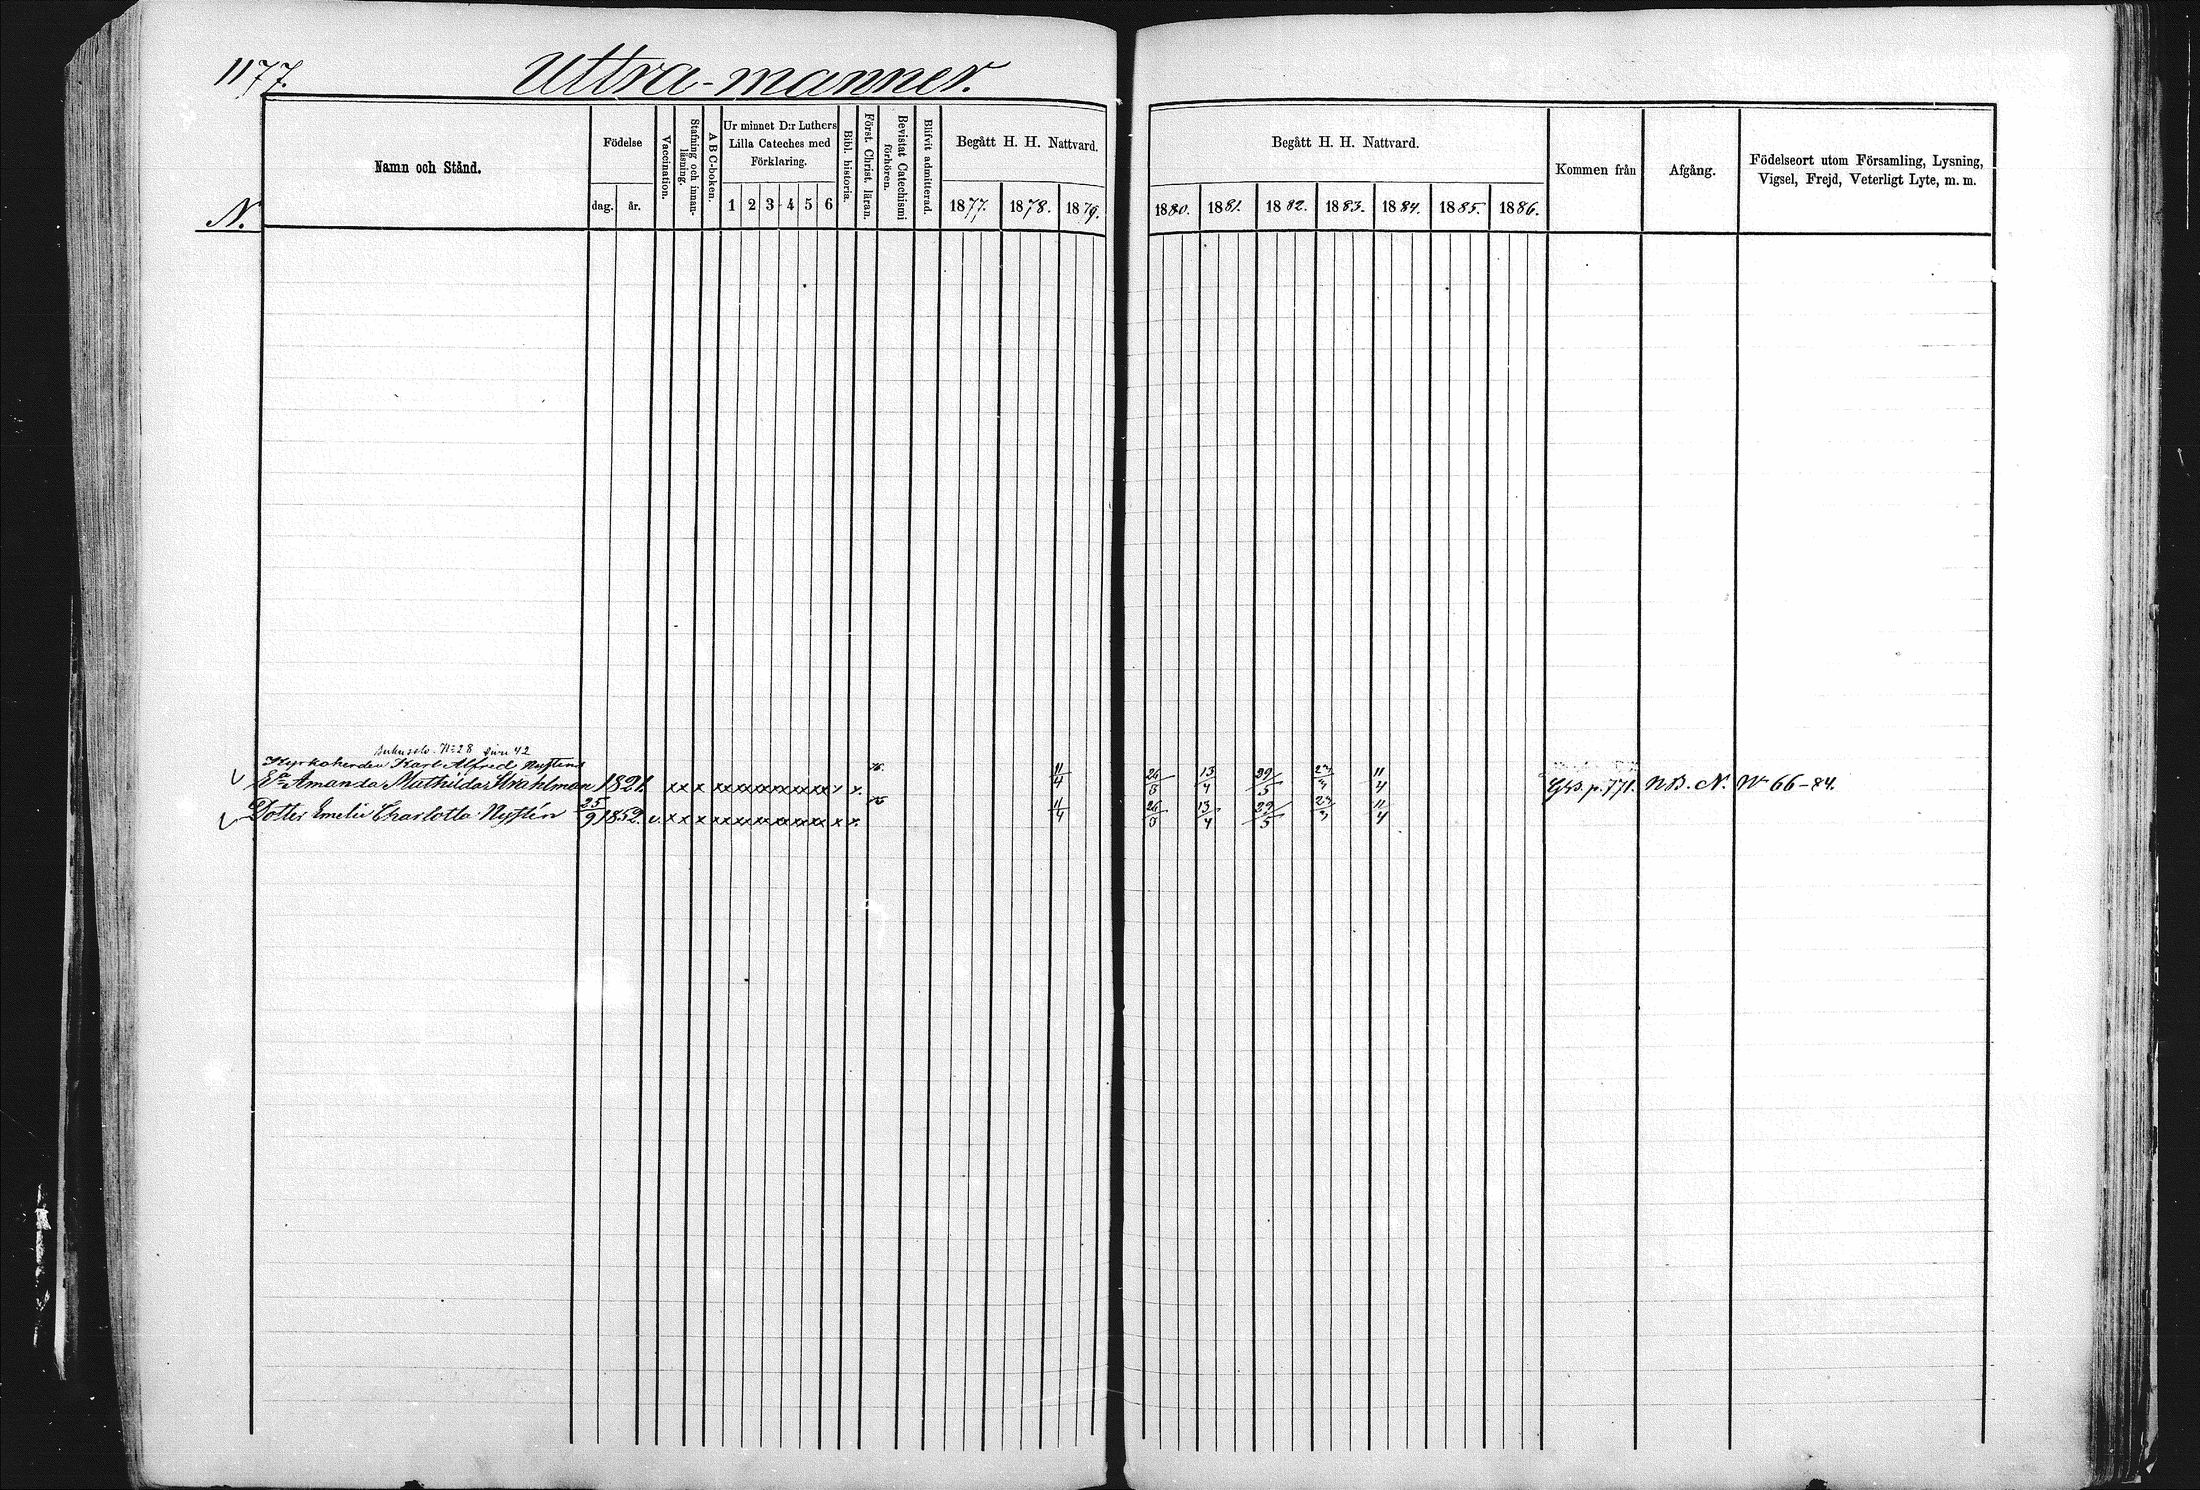 1177.
Uttra-manner.
N.
Namn och Stånd.
Födelse
dag.
år.
Vaccination.
Stafning och innanläsning.
A B C-boken.
Ur minnet D:r Luthers Lilla Cateches med Förklaring.
1 2 3 4 5 6
Bibl. historia.
Först. Christ. läran.
Bevistat Catechismi förhören.
Blifvit admitterad.
Begått H. H. Nattvard.
1877. 1878. 1879.
Begått H. H. Nattvard.
1880. 1881. 1882. 1883. 1884. 1885. 1886.
Kommen från
Afgång.
Födelseort utom Församling, Lysning, Vigsel, Frejd, Veterligt Lyte, m. m.
N:28 42
Kyrkoherden Karl Alfred Nysténs
Ea Amanda Mathilda Strahlman 1821. x x x xx xx xx xx xx xx x x. 11/4 13/4 29/5 11/4 p. 771. N. B. N. 66-84.
Dotter Emelie Charlotta Nystén 25/9 1852. v. x x x xx xx xx xx xx xx x x. 11/4 13/4 29/5 11/4